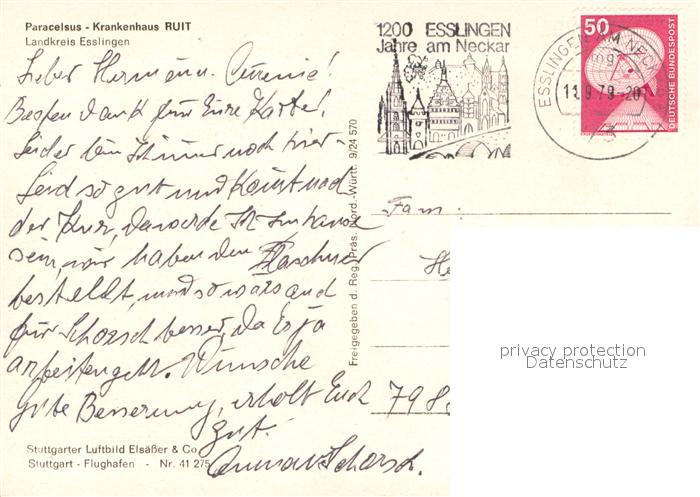 Paracelsus - Krankenhaus RUIT
Landkreis Esslingen
1200 ESSLINGEN
Jahre am Neckar
ESSLINGEN AM NECKAR
11.9.79-20
50
DEUTSCHE BUNDESPOST
Lieber Hermann
Besten Dank für Eure Karte!
Leider bin immer noch hier-
Seid so gut und kommt nach
der Kur, da werde ich zuhause
sein, wir haben den Flaschner
bestellt, und so wärs auch
für Schorsch besser, da Er ja
arbeiten geht. Wünsche
gute Besserung, erholt Euch
gut!
Anna u. Schorsch.
Fam.
He
798
Freigegeben d. Reg. Präs. Nord.-Württ. 9/24 570
Stuttgarter Luftbild Elsäßer & Co
Stuttgart - Flughafen - Nr. 41 275
privacy protection
Datenschutz